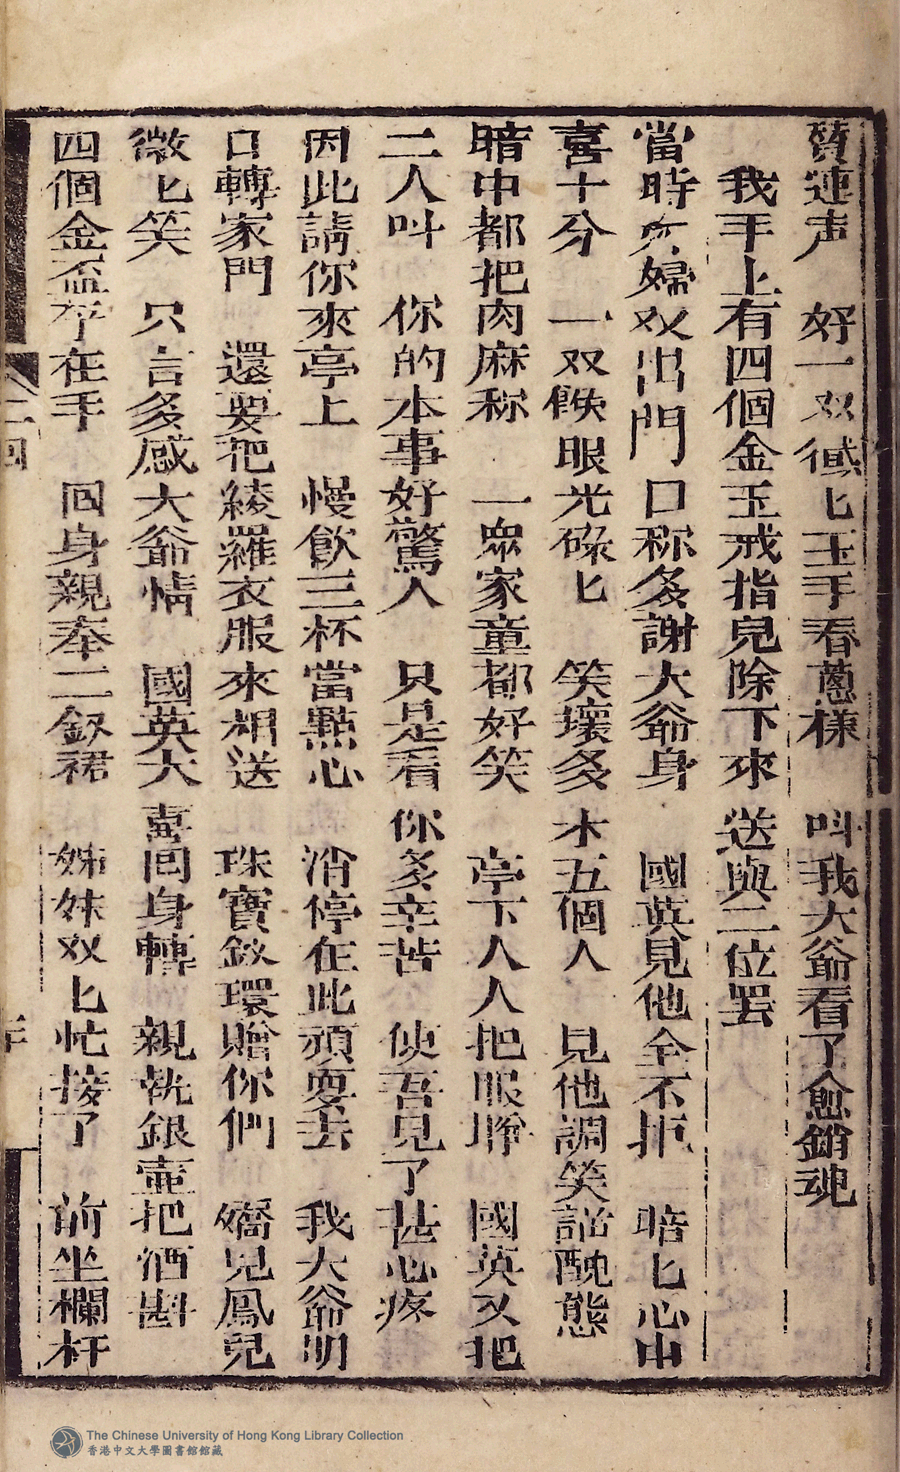 賛連声 好一双𢖍匕玉手春蔥樣 叫我大爺看了愈銷魂
我手上有四個金玉戒指兒除下來 送與二位罢
當時 婦双出門 口称多謝大爺身 國英見他全不拒 暗匕心中
喜十分 一双餓眼光碌匕 笑壞多 木五個人 見他調笑諂醜態
暗中都把肉麻称 一衆家童都好笑 亭下人人把眼睜 國英又把
二人叫 你的本事好驚人 只是看你多辛苦 使吾見了甚心疼
因此請你來亭上 慢飲三杯當點心 消停在此頑耍去 我大爺明
口轉家門 還要把綾羅衣服來相送 珠寶釵環贈你們 嬌兒鳳兒
微匕笑 只言多感大爺情 國英大喜回身轉 親執銀壺把酒斟
四個金盃 在手 回身親奉二釵裙 姊妹双匕忙接了 前坐欄杆
二回
The Chinese University of Hong Kong Library Collection
香港中文大學圖書館館藏